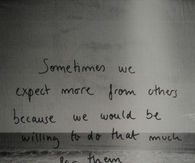 Sometimes we
expect more from others
because we would be
willing to do that much
for them